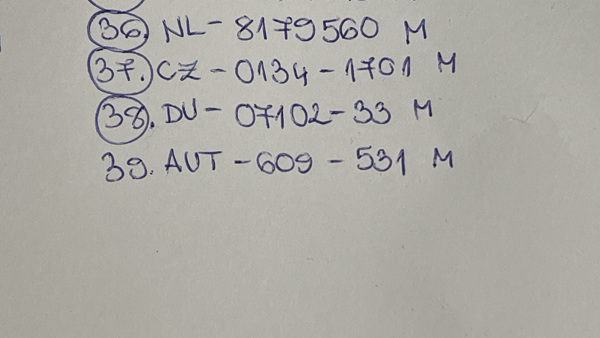 36. NL - 8179560 M
37. CZ - 0134 - 1701 M
38. DU - 07102 - 33 M
39. AUT - 609 - 531 M